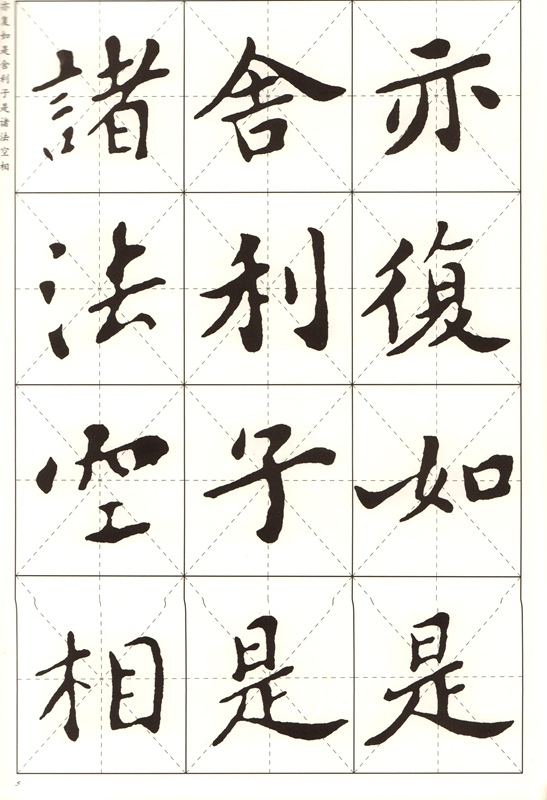 亦復如是
舍利子是
諸法空相
亦复如是舍利子是诸法空相
5